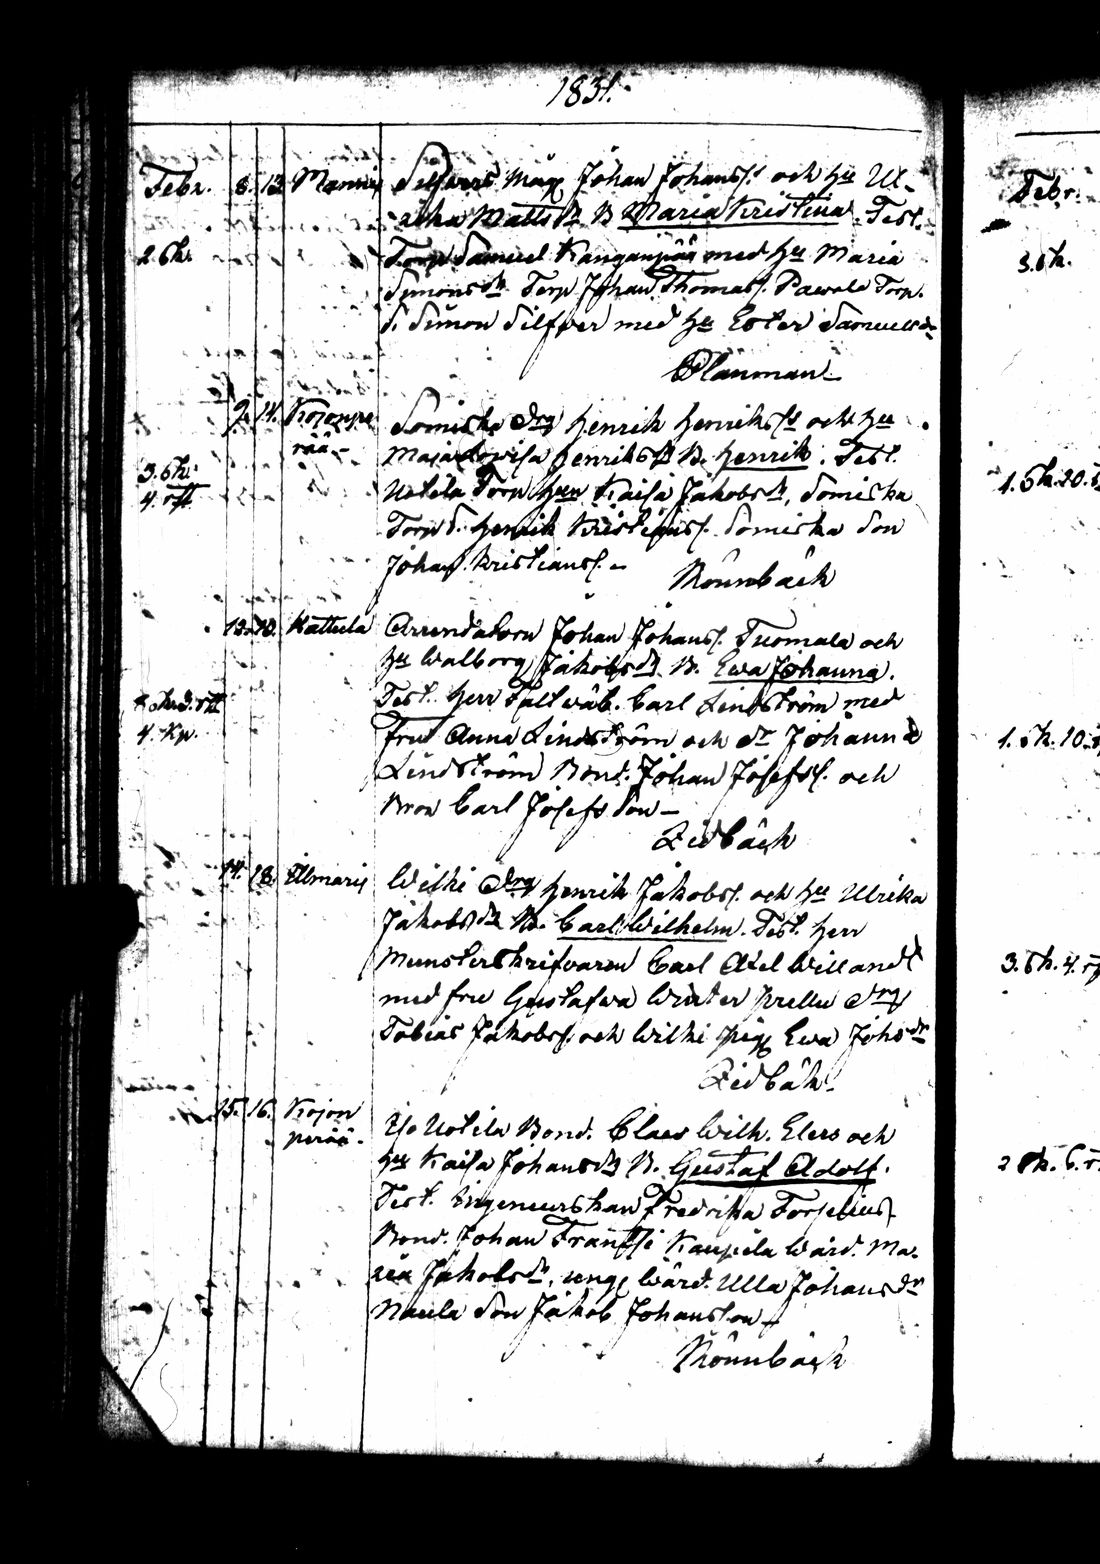 1831.
Febr. 8. 13. Mannis Silfvers Måg Johan Johanss. och Hu Ul-
rika Mattsdr B. Maria Kristina. Test.
2. Sk. Torp Samuel Kanganpää med Hu Maria
Simonsdr Torp Johan Thomass. Pawola Torp.
S. Simon Silfver med Hu Ester Samuelsdr
Planman
9. 14. Kojonpe
rää Somiska Drg Henrik Henrikss och Hu
Maja Lovisa Henriksdr B. Henrik. Test.
3. Sk.
4. rst Uotila Torp Hun Kaisa Jakobsdr, Somiska
Torp S. Henrik Kristianss. Somiska Son
Johan Kristianss.
Mönnbäck
13. 18. Kattula Arrendatorn Johan Johanss. Tuomala och
Hu Walborg Jakobsdr B. Ewa Johanna.
Test. Herr Fältwäb. Carl Lindström med
4. Kp. Fru Anna Lindström och Dr Johanna
Lindström Bond. Johan Josefss. och
Bror Carl Josefsson
Zidbäck
14. 18. Illmaris Wilki Drg Henrik Jakobss. och Hu Ulrika
Jakobsdr B. Carl Wilhelm. Test. Herr
Munsterskrifvaren Carl Axel Willandt
med fru Gustafwa Winter Prellu Drg
Tobias Jakobss. och Wilki pig Ewa Johsdr
Zidbäk
15. 16. Kojon
perää. Iso Uotila Bond. Claes Wilh. Elers och
Hu Kaisa Johansdr B. Gustaf Adolf.
Test. Ingeneurskan Fredrika Forselius
Bond. Johan Frantsi Kaupila Wärd. Ma-
ria Jakobsdr, ung Wärd. Ulla Johansdr
Naula Son Jakob Johansson
Mönnbäck
Febr.
3. Sk.
1. Sk. 20.
1. Sk. 10.
3. Sk. 4.
2 Sk. 6.